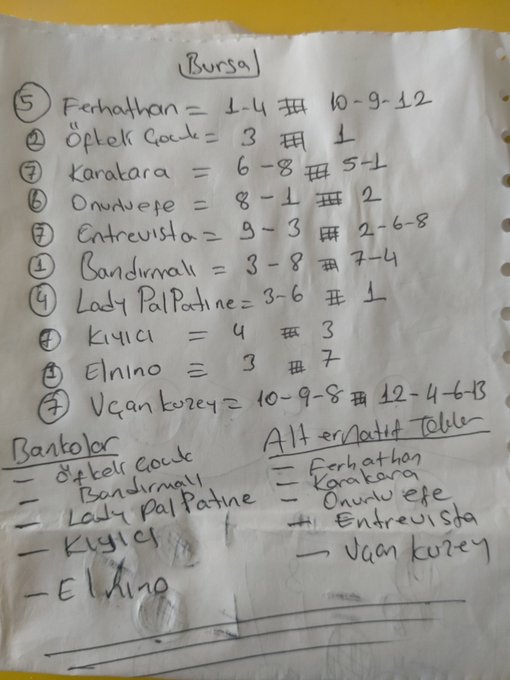 Bursa
5 Ferhathan = 1-4 # 10-9-12
2 Öfkeli Çocuk = 3 # 1
7 Karakara = 6-8 # 5-1
6 Onurluefe = 8-1 # 2
7 Entrevista = 9-3 # 2-6-8
1 Bandırmalı = 3-8 # 7-4
4 Lady PalPatine = 3-6 # 1
Kıyıcı = 4 # 3
Elnino = 3 # 7
7 Uçan kuzey = 10-9-8 # 12-4-6-13
Bankolar
- Öfkeli Çocuk
- Bandırmalı
- Lady PalPatine
- Kıyıcı
- El Nino
Alternatif Tekler
- Ferhathan
- Karakara
- Onurlu efe
- Entrevista
- Uçan kuzey